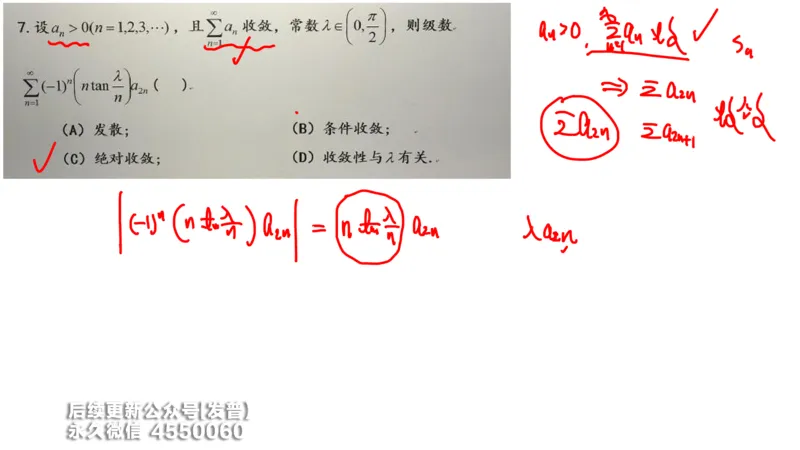 7. 设 aₙ > 0(n = 1,2,3,⋯)，且 ∑_{n=1}^{∞} aₙ 收敛，常数 λ ∈ (0, π/2)，则级数
∑_{n=1}^{∞} (−1)ⁿ (n tan λ/n) a₂ₙ (    ).
(A) 发散；
(B) 条件收敛；
(C) 绝对收敛；
(D) 收敛性与 λ 有关.
aₙ>0, ∑_{n=1}^{∞} aₙ 收敛 ✓
Sₙ
⇒ ∑ a₂ₙ
∑ a₂ₙ
∑ a₂ₙ₊₁
|(−1)ⁿ (n tan λ/n) a₂ₙ| = n tan λ/n a₂ₙ
λ a₂ₙ
后续更新公众号[发普]
永久微信 4550060